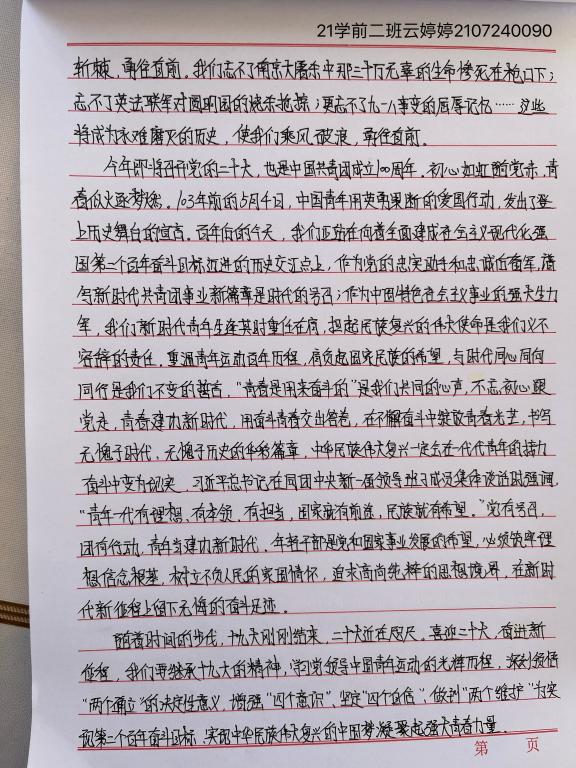 21学前二班云婷婷2107240090
斩棘,勇往直前。我们忘不了南京大屠杀中那三十万无辜的生命惨死在枪口下;
忘不了英法联军对圆明园的烧杀抢掠;更忘不了九一八事变的屈辱记忆……这些
将成为永难磨灭的历史,使我们乘风破浪,勇往直前。
今年即将召开党的二十大,也是中国共青团成立100周年。初心如虹颐党赤,青
春似火逐梦燃。103年前的5月4日,中国青年用英勇果断的爱国行动,发出了登
上历史舞台的宣言。百年后的今天,我们正站在向着全面建成社会主义现代化强
国第二个百年奋斗目标迈进的历史交汇点上,作为党的忠实助手和忠诚后备军,谱
写新时代共青团事业新篇章是时代的号召;作为中国特色社会主义事业的强大生力
军,我们新时代青年生逢其时重任在肩,担起民族复兴的伟大使命是我们义不
容辞的责任。重温青年运动百年历程,肩负起国家民族的希望,与时代同心同向
同行是我们不变的誓言,"青春是用来奋斗的"是我们共同的心声,不忘初心跟
党走,青春建功新时代,用奋斗青春交出答卷,在不懈奋斗中绽放青春光芒,书写
无愧于时代、无愧于历史的华彩篇章,中华民族伟大复兴一定会在一代代青年的接力
奋斗中变为现实,习近平总书记在同团中央新一届领导班子成员集体谈话时强调,
"青年一代有理想、有本领、有担当,国家就有前途,民族就有希望。"党有号召,
团有行动,青年当建功新时代。年轻干部是党和国家事业发展的希望,必须筑牢理
想信念根基,树立不负人民的家国情怀,追求高尚纯粹的思想境界,在新时
代新征程上留下无悔的奋斗足迹。
随着时间的步伐,十九大刚刚结束,二十大近在咫尺。喜迎二十大,奋进新
征程,我们要继承十九大的精神,学习党领导中国青年运动的光辉历程,深刻领悟
"两个确立"的决定性意义,增强"四个意识"、坚定"四个自信"、做到"两个维护"为实
现第二个百年奋斗目标、实现中华民族伟大复兴的中国梦凝聚起强大青春力量。
第 页